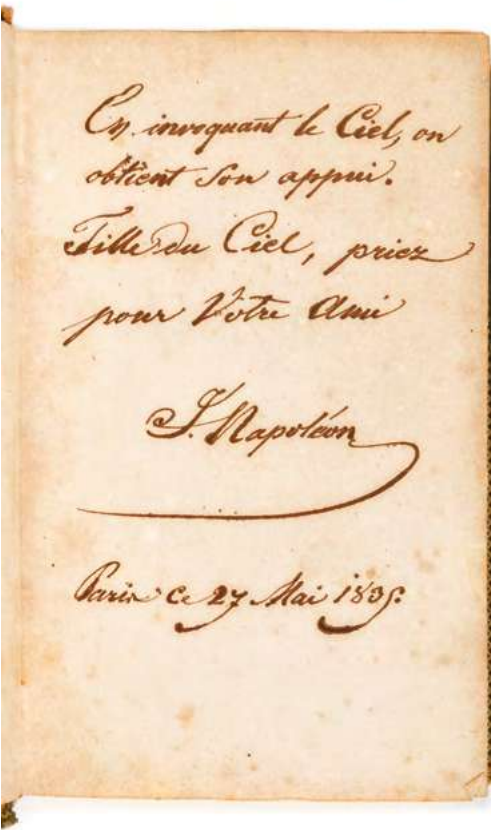 En invoquant le Ciel, on
obtient son appui.
Fille du Ciel, priez
pour Votre Ami
J. Napoléon
Paris ce 27 Mai 1835.